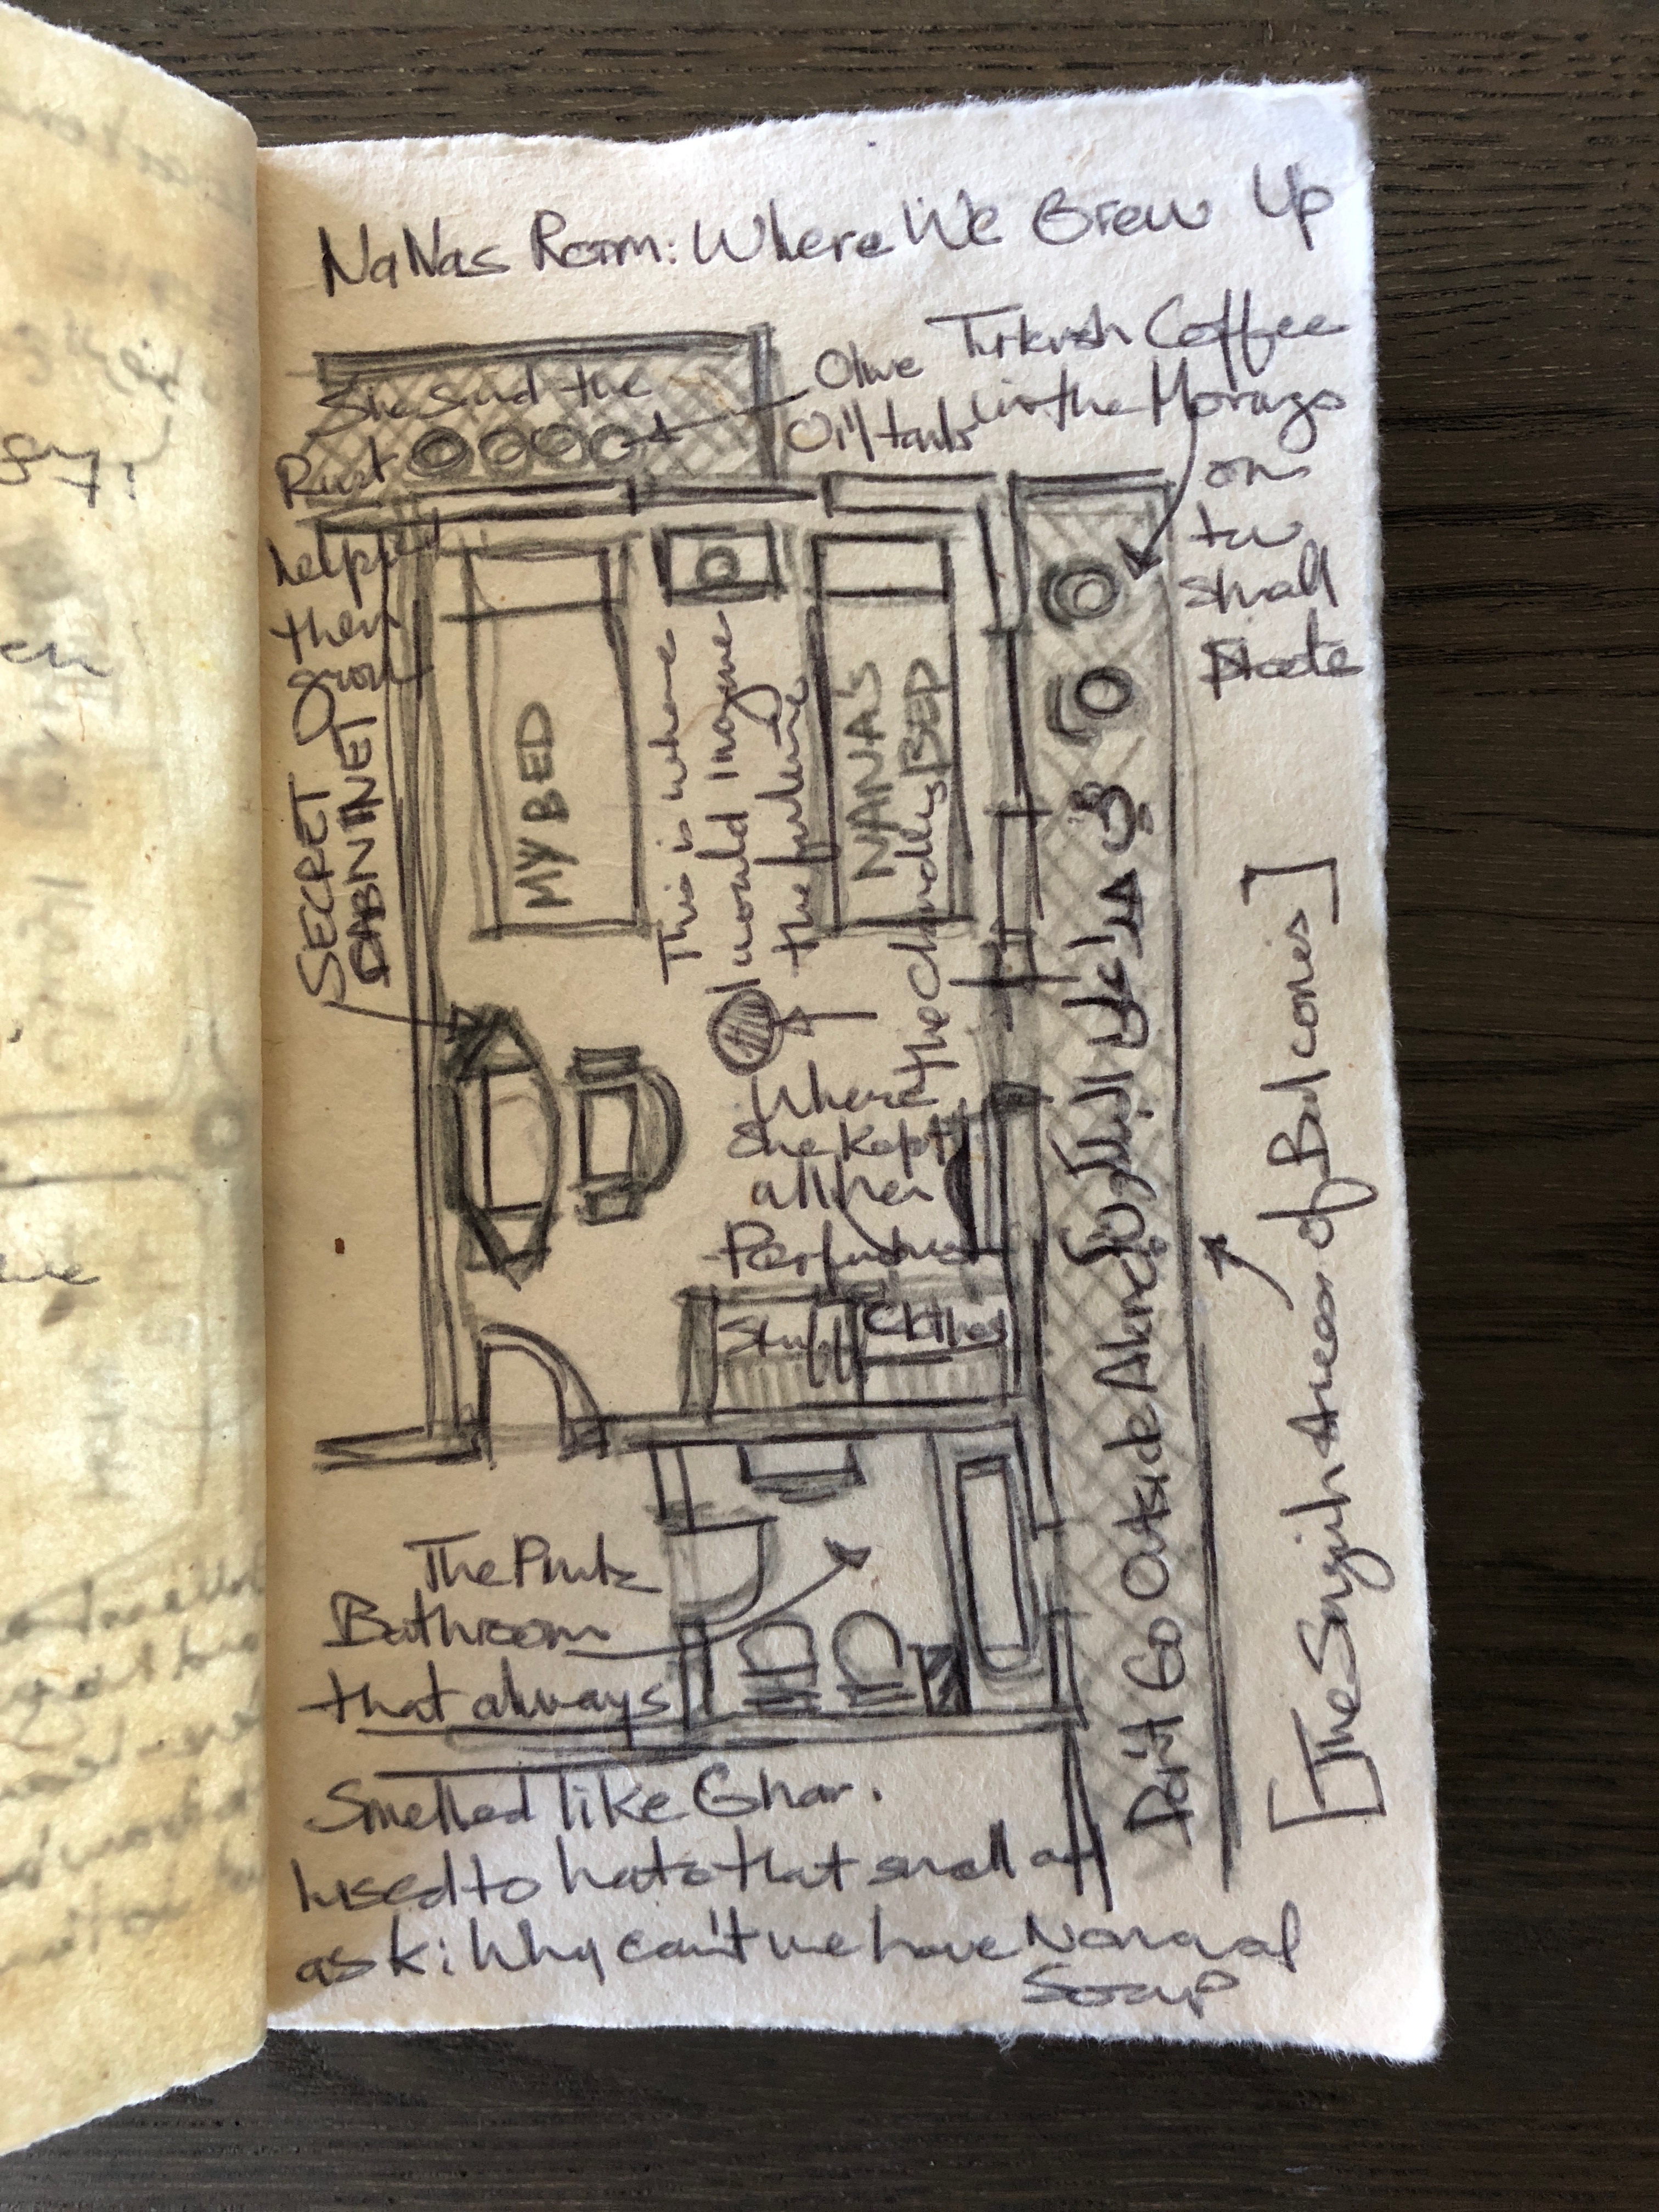 NaNas Room: Where We Grew Up
She said the
Rust
helped
them
grow
Olive
Oil tanks
Turkish Coffee
in the Mornings
on
two
small
SECRET
CABNINET
MY BED
This is where
I would imagine
the future
NANA'S
BED
Where
She kept
all her
Perfumes
the Chandelier
Stuff
Clothes
Don't Go Outside Alone
[The Single Area of Balconies]
The Pink
Bathroom
that always
Smelled like Ghar.
I used to hate that smell and
ask: Why can't we have Normal
Soap